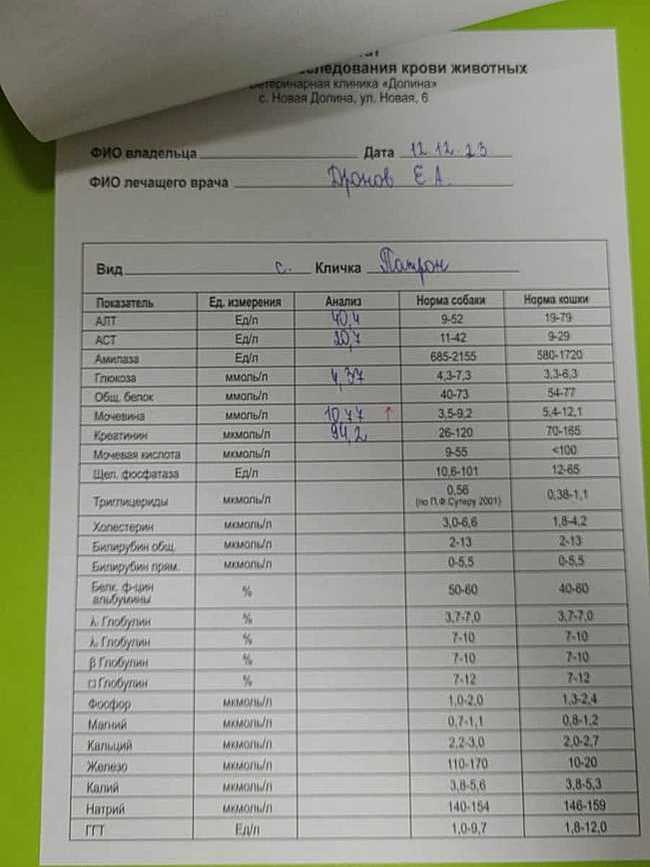 следования крови животных
Ветеринарная клиника «Долина»
с. Новая Долина, ул. Новая, 6
ФИО владельца Дата 12.12.23
ФИО лечащего врача Дронов Е А.
Вид с. Кличка Патрон
Показатель Ед. измерения Анализ Норма собаки Норма кошки
АЛТ Ед/л 40,4 9-52 19-79
АСТ Ед/л 20,7 11-42 9-29
Амилаза Ед/л 685-2155 580-1720
Глюкоза ммоль/л 4,37 4,3-7,3 3,3-6,3
Общ. белок ммоль/л 40-73 54-77
Мочевина ммоль/л 10,77 ↑ 3,5-9,2 5,4-12,1
Креатинин мкмоль/л 94,2 26-120 70-165
Мочевая кислота мкмоль/л 9-55 <100
Щел. фосфатаза Ед/л 10,6-101 12-65
Триглицериды мкмоль/л 0,56 0,38-1,1
(по П.Ф.Сутеру 2001)
Холестерин мкмоль/л 3,0-6,6 1,8-4,2
Билирубин общ. мкмоль/л 2-13 2-13
Билирубин прям. мкмоль/л 0-5,5 0-5,5
Белк. ф-цин % 50-60 40-60
альбумины
λ Глобулин % 3,7-7,0 3,7-7,0
λ Глобулин % 7-10 7-10
β Глобулин % 7-10 7-10
□ Глобулин % 7-12 7-12
Фосфор мкмоль/л 1,0-2,0 1,3-2,4
Магний мкмоль/л 0,7-1,1 0,8-1,2
Кальций мкмоль/л 2,2-3,0 2,0-2,7
Железо мкмоль/л 110-170 10-20
Калий мкмоль/л 3,8-5,6 3,8-5,3
Натрий мкмоль/л 140-154 146-159
ГГТ Ед/л 1,0-9,7 1,8-12,0